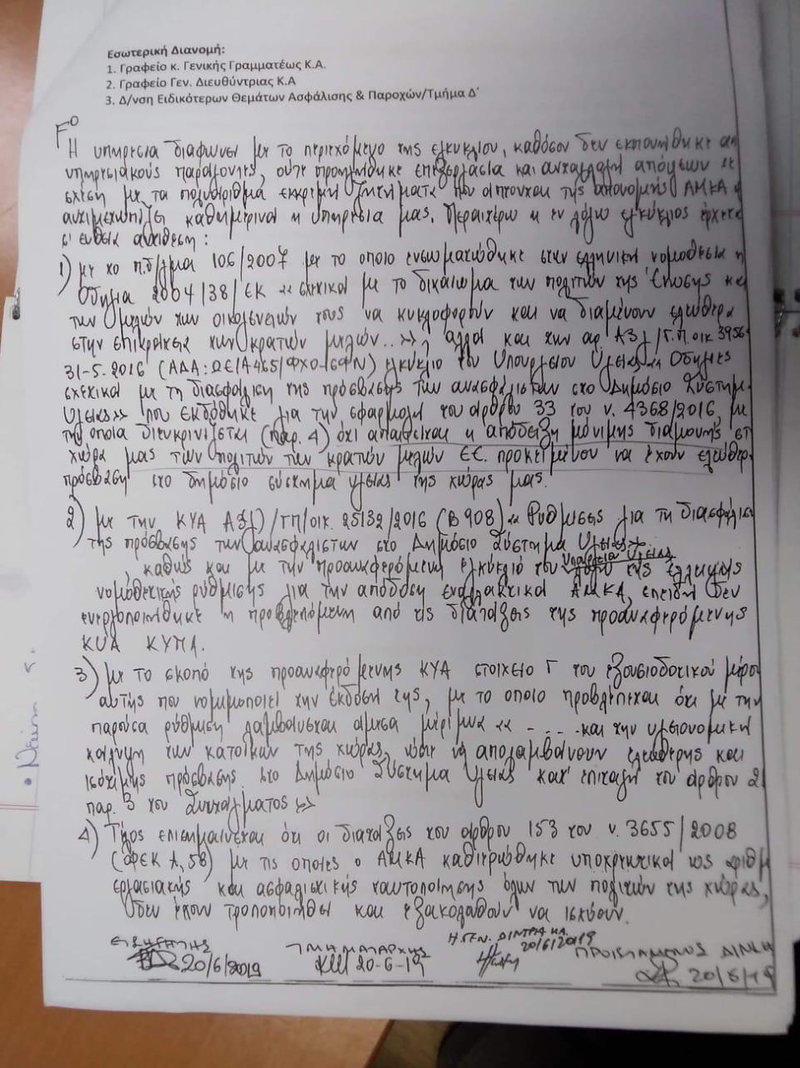 Εσωτερική Διανομή:
1. Γραφείο κ. Γενικής Γραμματέως Κ.Α.
2. Γραφείο Γεν. Διευθύντριας Κ.Α
3. Δ/νση Ειδικότερων Θεμάτων Ασφάλισης & Παροχών/Τμήμα Δ΄
Η υπηρεσία διαφωνεί με το περιεχόμενο της εγκυκλίου, καθόσον δεν εκπονήθηκε
υπηρεσιακούς παράγοντες, ούτε προηγήθηκε επεξεργασία και ανταλλαγή απόψεων
σχέση με τα πολυάριθμα εκκρεμή ζητήματα που άπτονται της απονομής ΑΜΚΑ
αντιμετωπίζει καθημερινά η υπηρεσία μας. Περαιτέρω η εν λόγω εγκύκλιος έρχεται
σ' ευθεία αντίθεση:
1) με το π.δ/γμα 106/2007 με το οποίο ενσωματώθηκε στην ελληνική νομοθεσία η
Οδηγία 2004/38/ΕΚ «σχετικά με το δικαίωμα των πολιτών της Ένωσης και
των μελών των οικογενειών τους να κυκλοφορούν και να διαμένουν ελεύθερα
στην επικράτεια των κρατών μελών..», αλλά και την αρ. Α3γ/Γ.Π.οικ 3956
31-5-2016 εγκύκλιο του Υπουργείου Υγείας «Οδηγίες
σχετικά με τη διασφάλιση της πρόσβασης των ανασφάλιστων στο Δημόσιο Σύστημα
Υγείας» που εκδόθηκε για την εφαρμογή του άρθρου 33 του ν. 4368/2016, με
την οποία διευκρινίζεται (παρ. 4) όχι απαιτείται η απόδειξη μόνιμης διαμονής στ
χώρα μας των πολιτών των κρατών μελών ΕΕ. προκειμένου να έχουν ελεύθερ
πρόσβαση στο δημόσιο σύστημα υγείας της χώρας μας.
2) με την ΚΥΑ Α3(γ)/ΓΠ/οικ. 25132/2016 (Β 908) «Ρυθμίσεις για τη διασφάλιση
της πρόσβασης των ανασφάλιστων στο Δημόσιο Σύστημα Υγείας»
καθώς και με την προαναφερόμενη εγκύκλιο του Υπουργείου Υγείας της έλλειψης
νομοθετικής ρύθμισης για την απόδοση εναλλακτικά ΑΜΚΑ, επειδή δεν
ενεργοποιήθηκε η προβλεπόμενη από τις διατάξεις της προαναφερόμενης
ΚΥΑ ΚΥΠΑ.
3) με το σκοπό της προαναφερόμενης ΚΥΑ στοιχείο Γ του εξουσιοδοτικού μέρο
αυτής που νομιμοποιεί την έκδοσή της, με το οποίο προβλέπεται ότι με την
παρούσα ρύθμιση λαμβάνεται άμεσα μέριμνα «.... και την υγειονομική
κάλυψη των κατοίκων της χώρας, ώστε να απολαμβάνουν ελεύθερης και
ισότιμης πρόσβασης στο Δημόσιο Σύστημα Υγείας κατ' επιταγή του άρθρου 2
παρ. 3 του Συντάγματος»
4) Τέλος επισημαίνεται ότι οι διατάξεις του άρθρου 153 του ν. 3655/2008
(ΦΕΚ Α, 58) με τις οποίες ο ΑΜΚΑ καθιερώθηκε υποχρεωτικά ως αριθμ
εργασιακής και ασφαλιστικής ταυτοποίησης όλων των πολιτών της χώρας,
δεν έχουν τροποποιηθεί και εξακολουθούν να ισχύουν.
ΕΙΣΗΓΗΤΗΣ ΤΜΗΜΑΤΑΡΧΗΣ Η ΓΕΝ. ΔΙΝΤΡΙΑ ΚΑ. ΠΡΟΙΣΤΑΜΕΝΟΣ Δ/ΝΣΗ
20/6/2019 20-6-19 20/6/2019 20/6/19